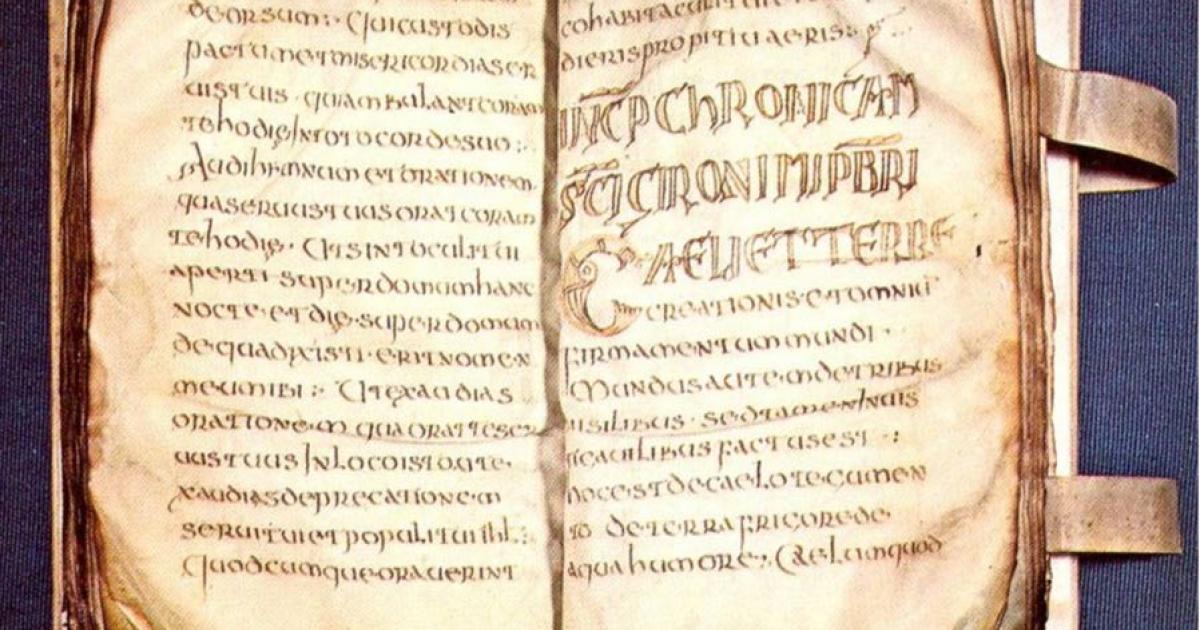 deorsum:· Qui custodis
pactum et misericordias ser
uis tuis · qui ambulant coram
te hodie In toto corde suo :·
Audi hymnum et orationem
qua seruus tuus orat coram
te hodie · Ut sint oculi tui
aperti · super domum hanc
nocte · et die · super domum
de qua dixisti · erit nomen
meum ibi :· Ut exaudias
oratione m qua orat te ser
uus tuus In loco isto ut e
xaudias deprecatione m
serui tui et populi tui ihl :·
Quodcumque orauerint
dieris propitiuaeris :·
INCP CHRONICAM
SCI CIRONIMI PBRI
CAELI ET TERRE
creationis et omniu
firmamentum mundi ·
Mundus autem de tribus
uisilibus · sed tamen Inuis
ticauilibus factus est ·:
hoc est de caelo te cumen
to de terra frigore de
aqua humore :· Caelum quod